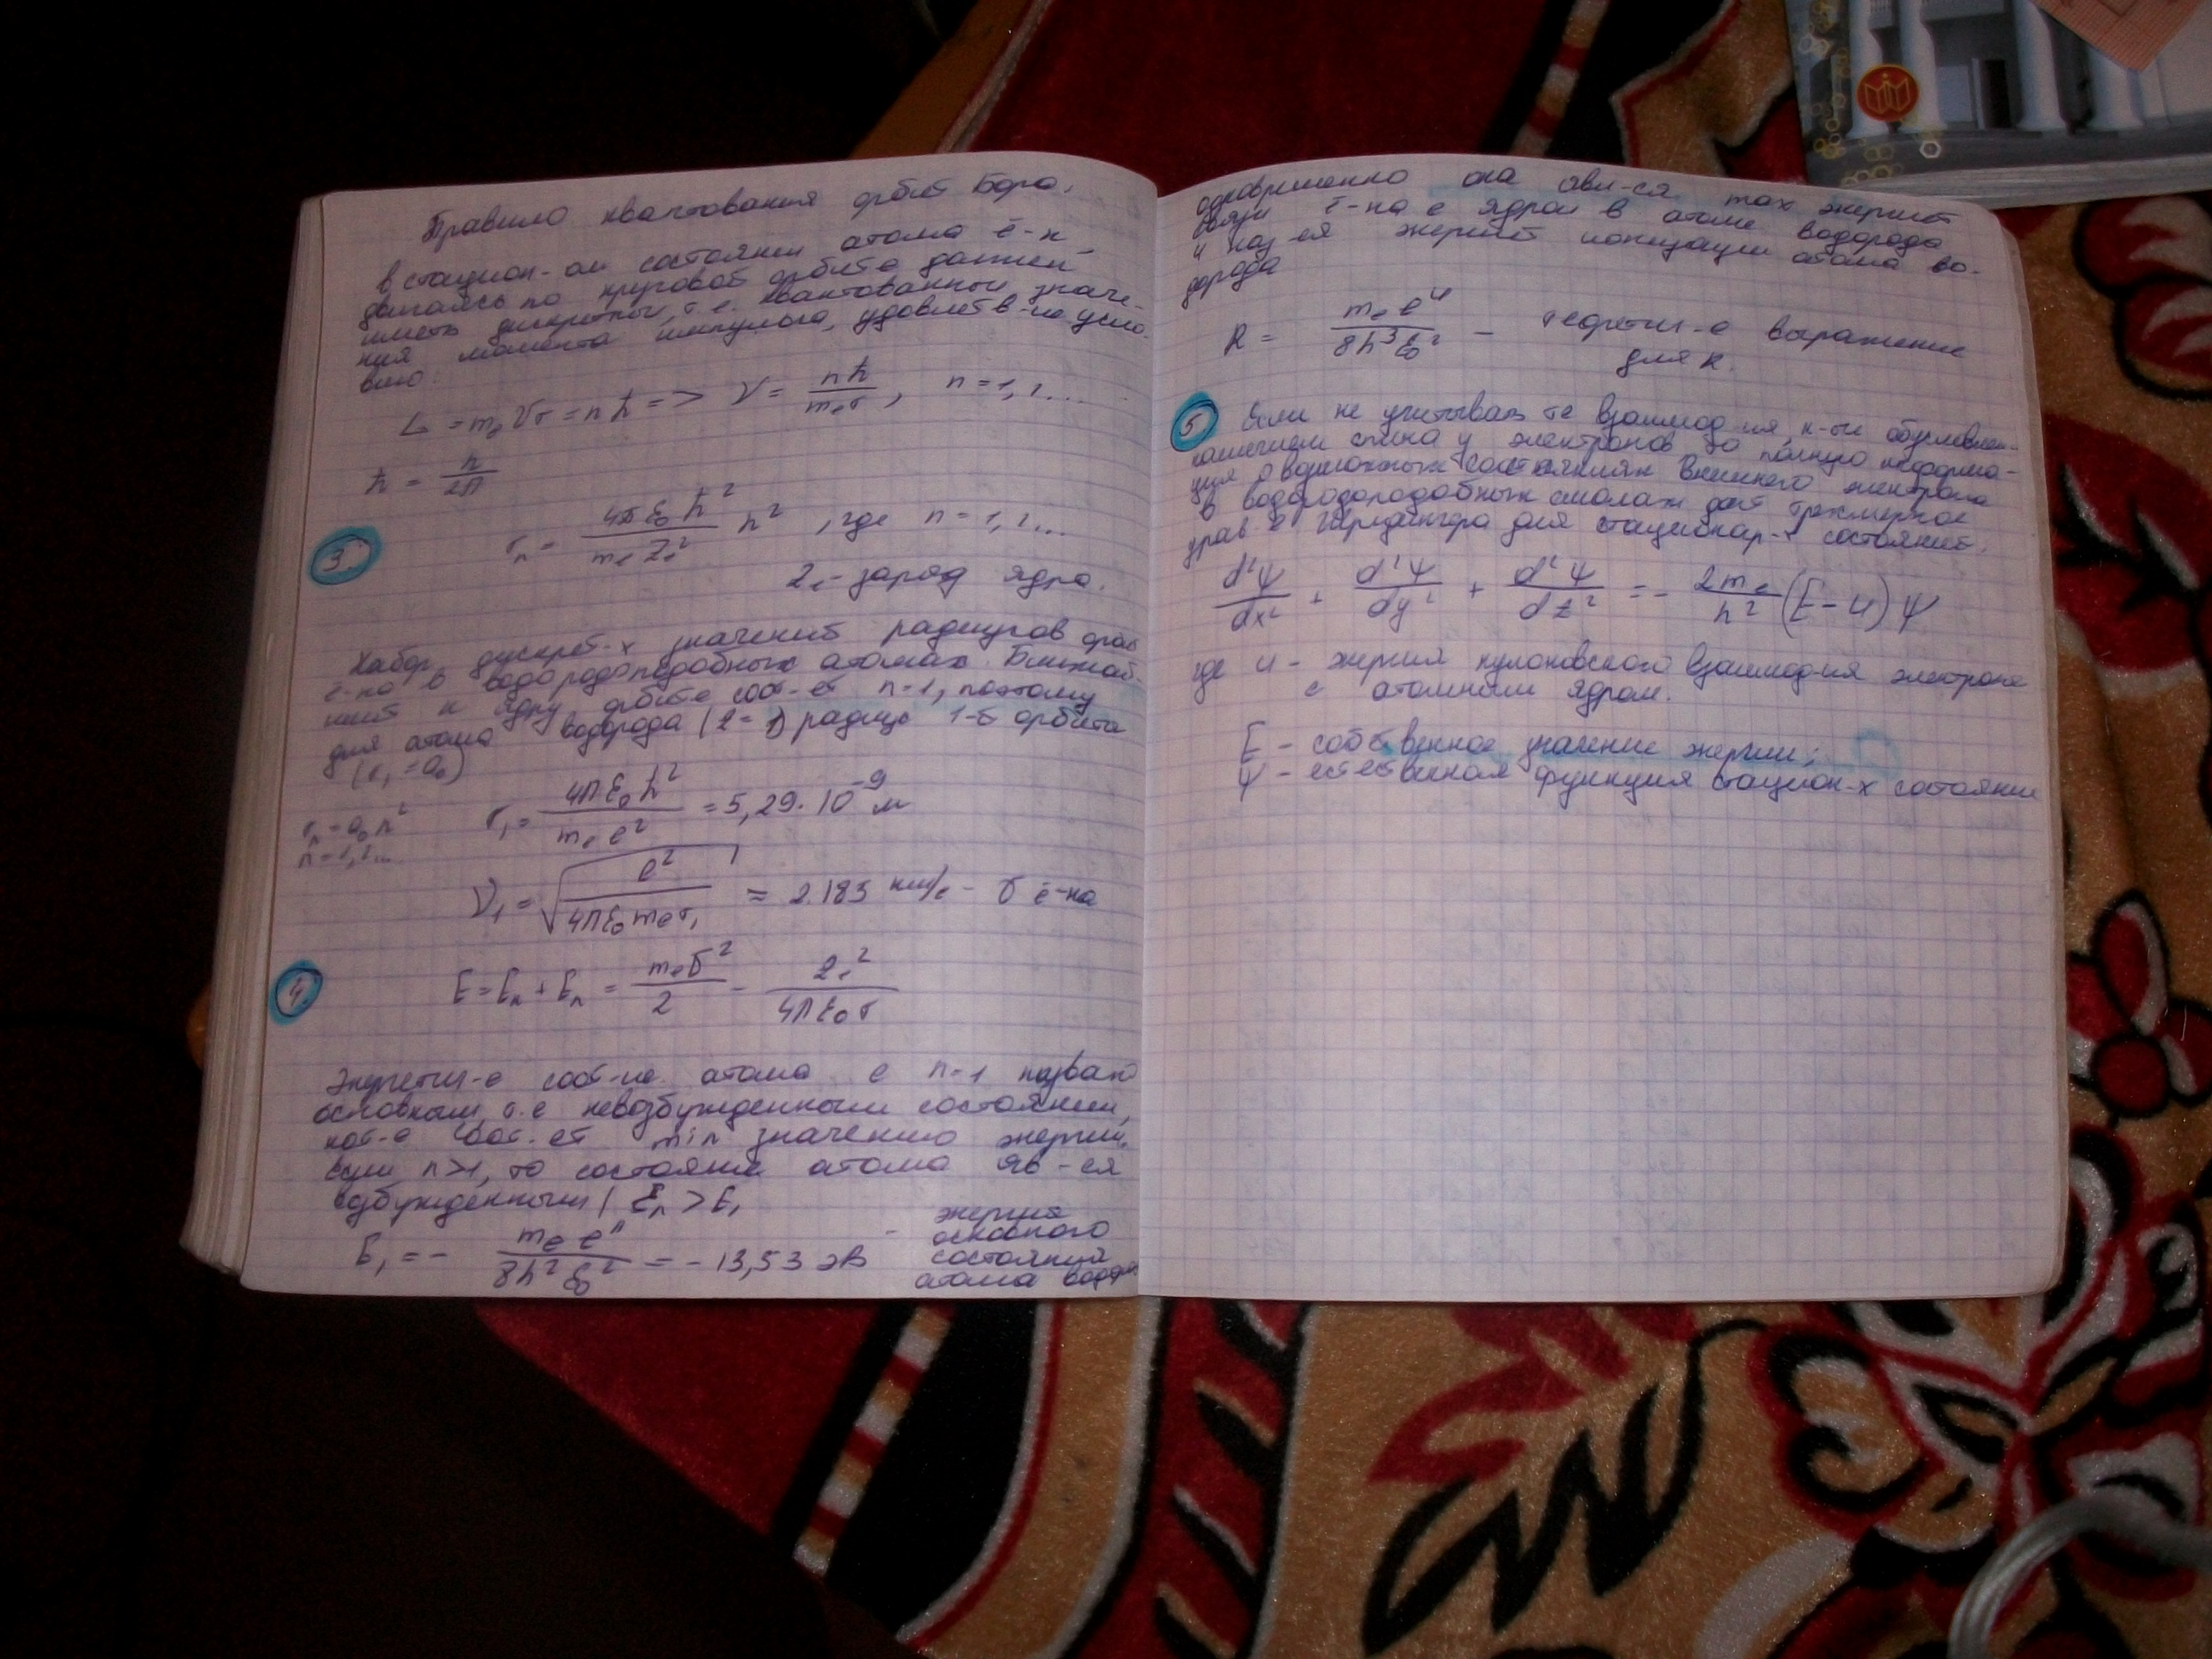 Правило квантования орбит Бора.
в стацион-ом состоянии атома ē-н
двигаясь по круговой орбите должен
иметь дискретные, т.е. квантованные значе-
ния момента импульса, удовлетв-ие усло-
вию:
L = mₑ𝒱r = nħ => 𝒱 = nħ/mₑr, n = 1, 2...
ħ = h/2π
3. rₙ = 4πε₀ħ²/mₑZₑ² n², где n = 1, 2...
Zₑ - заряд ядра.
Набор дискрет-х значений радиусов орбит
ē-на в водородоподобных атомах. Ближай-
шей к ядру орбите соот-ет n=1, поэтому
для атома водорода (Z = 1) радиус 1-й орбиты
(r₁ = a₀)
r₁ = 4πε₀ħ²/mₑe² = 5,29·10⁻⁹ м
rₙ = a₀n²
n = 1, 2...
𝒱₁ = √(e²/4πε₀mₑr₁) ≈ 2.183 км/с - v ē-на
4. E = Eₖ + Eₙ = mₑv²/2 - Zₑ²/4πε₀r
Энергетич-е сост-ие атома с n=1 назван
основным, т.е невозбужденным состоянием,
кот-е соот-ет min значению энергии.
если n>1, то состояние атома яв-ся
возбужденным | Eₙ > E₁
E₁ = - mₑe⁴/8h²ε₀² = -13,53 эВ - энергия
основного
состояния
атома водор
одновременно она явл-ся max энергией
связи ē-на с ядром в атоме водорода
и наз-ся энергией ионизации атома во-
дорода
R = mₑe⁴/8h³ε₀² - теоретич-е выражение
для R.
5. Если не учитывать те взаимод-ия, к-ые обусловлен-
наличием спина у электронов то полную информа-
ция о возможных состояниях внешнего электрона
в водородородобных смолах даёт трехмерное
урав-е Шредингера для стационар-х состояний.
d²ψ/dx² + d²ψ/dy² + d²ψ/dz² = - 2mₑ/ħ² (E - U) ψ
где U - энергия кулоновского взаимод-ия электрона
с атомным ядром.
E - собственное значение энергии;
ψ - естественная функция стацион-х состояние